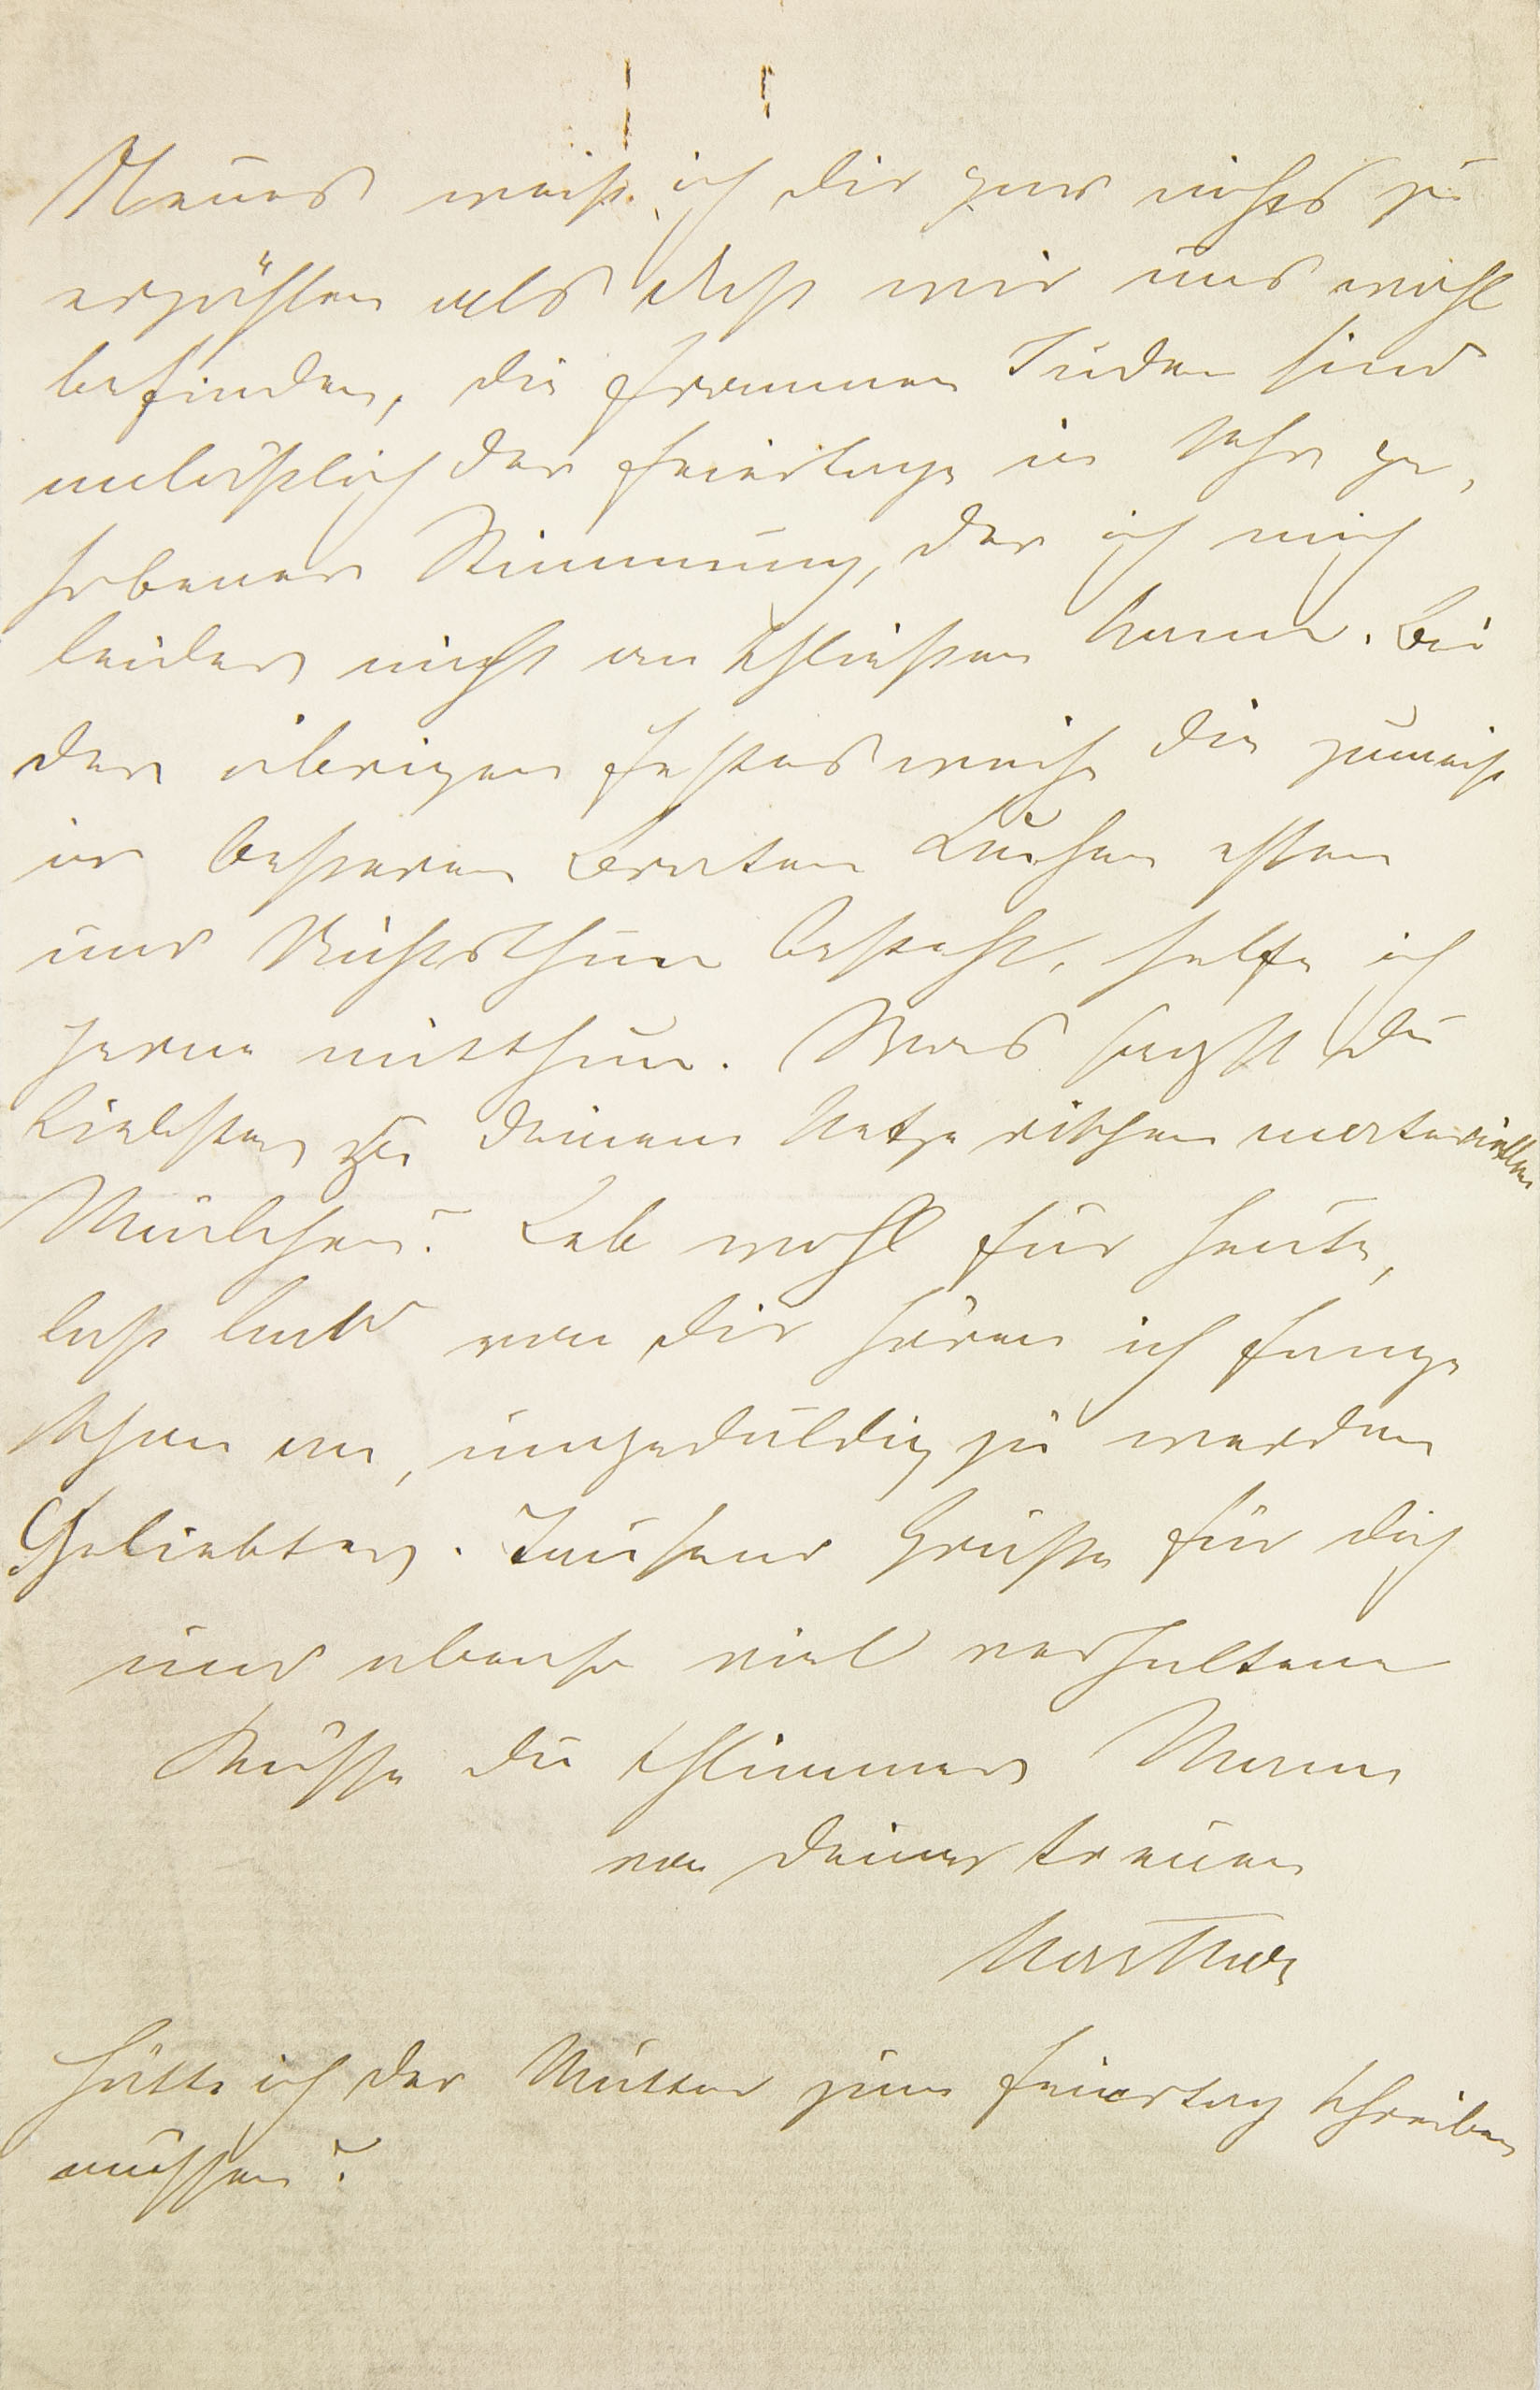 Neues weiß ich dir gar nichts zu
erzählen als daß wir uns wohl
befinden, die frommen Juden sind
anläßlich der Feiertage in sehr ge,
hobener Stimmung, der ich mich
leider nicht anschließen kann. Bei
der übrigen Festesweihe die zumeist
in besseren Braten Kuchen essen
und Nichtsthun besteht, helfe ich
gerne mitthun. Was sagst du
Liebster zu deinem ketzerischen materiellen
Mädchen? Leb wohl für heute,
laß bald von dir hören ich fange
schon an, ungeduldig zu werden
Geliebter. Tausend Grüße für dich
und ebenso viel verhaltene
Küsse du schlimmer Mann
von deiner treuen
Martha
Hätte ich der Mutter zum Feiertag schreiben
müssen?